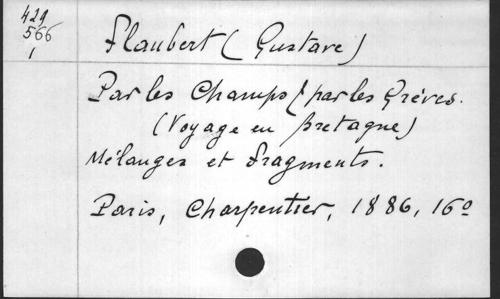 429
566
1
Flaubert (Gustave)
Par les Champs & par les Grèves.
(Voyage en Bretagne)
Mélanges et fragments.
Paris, Charpentier, 1886, 16º